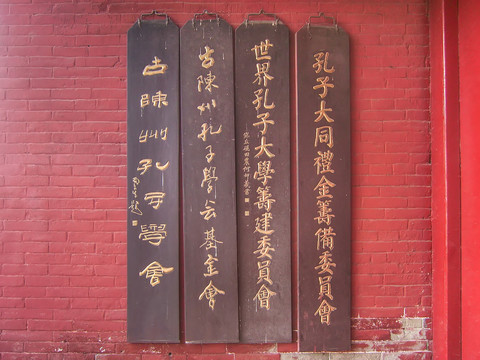 孔子大同禮金籌備委員會
世界孔子大學籌建委員會
古陳州孔子學会基金會
古陳州孔子學會